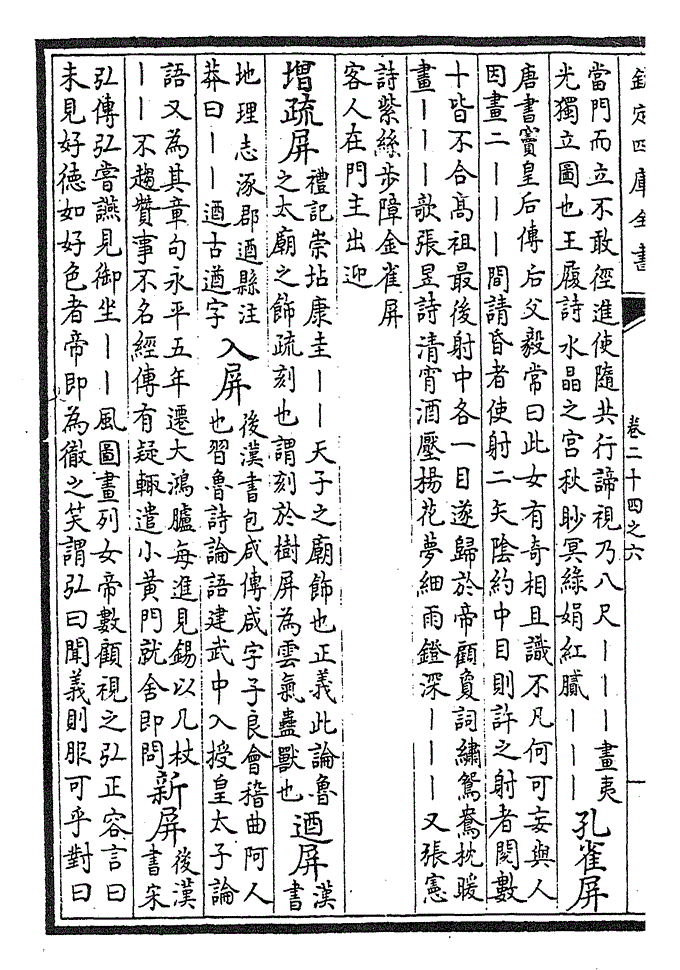 欽定四庫全書
卷二十四之六
當門而立不敢徑進使隨共行諦視乃八尺｜｜｜畫夷
光獨立圖也王履詩水晶之宮秋眇冥綠娟紅膩｜｜｜
孔雀屏
唐書竇皇后傳后父毅常曰此女有奇相且識不凡何可妄與人
因畫二｜｜｜間請昏者使射二矢陰約中目則許之射者閱數
十皆不合高祖最後射中各一目遂歸於帝顧敻詞繡鴛鴦枕暖
畫｜｜｜歌張昱詩清宵酒壓楊花夢細雨鐙深｜｜｜又張憲
詩紫絲步障金雀屏
客人在門主出迎
增疏屏
禮記崇坫康圭｜｜天子之廟飾也正義此論魯
之太廟之飾疏刻也謂刻於樹屏為雲氣蟲獸也
迺屏
漢
書
地理志涿郡迺縣注
莽曰｜｜迺古遒字
入屏
後漢書包咸傳咸字子良會稽曲阿人
也習魯詩論語建武中入授皇太子論
語又為其章句永平五年遷大鴻臚每進見錫以几杖
｜｜不趨贊事不名經傳有疑輒遣小黄門就舍即問
新屏
後漢
書宋
弘傳弘嘗讌見御坐｜｜風圖畫列女帝數顧視之弘正容言曰
未見好徳如好色者帝即為徹之笑謂弘曰聞義則服可乎對曰